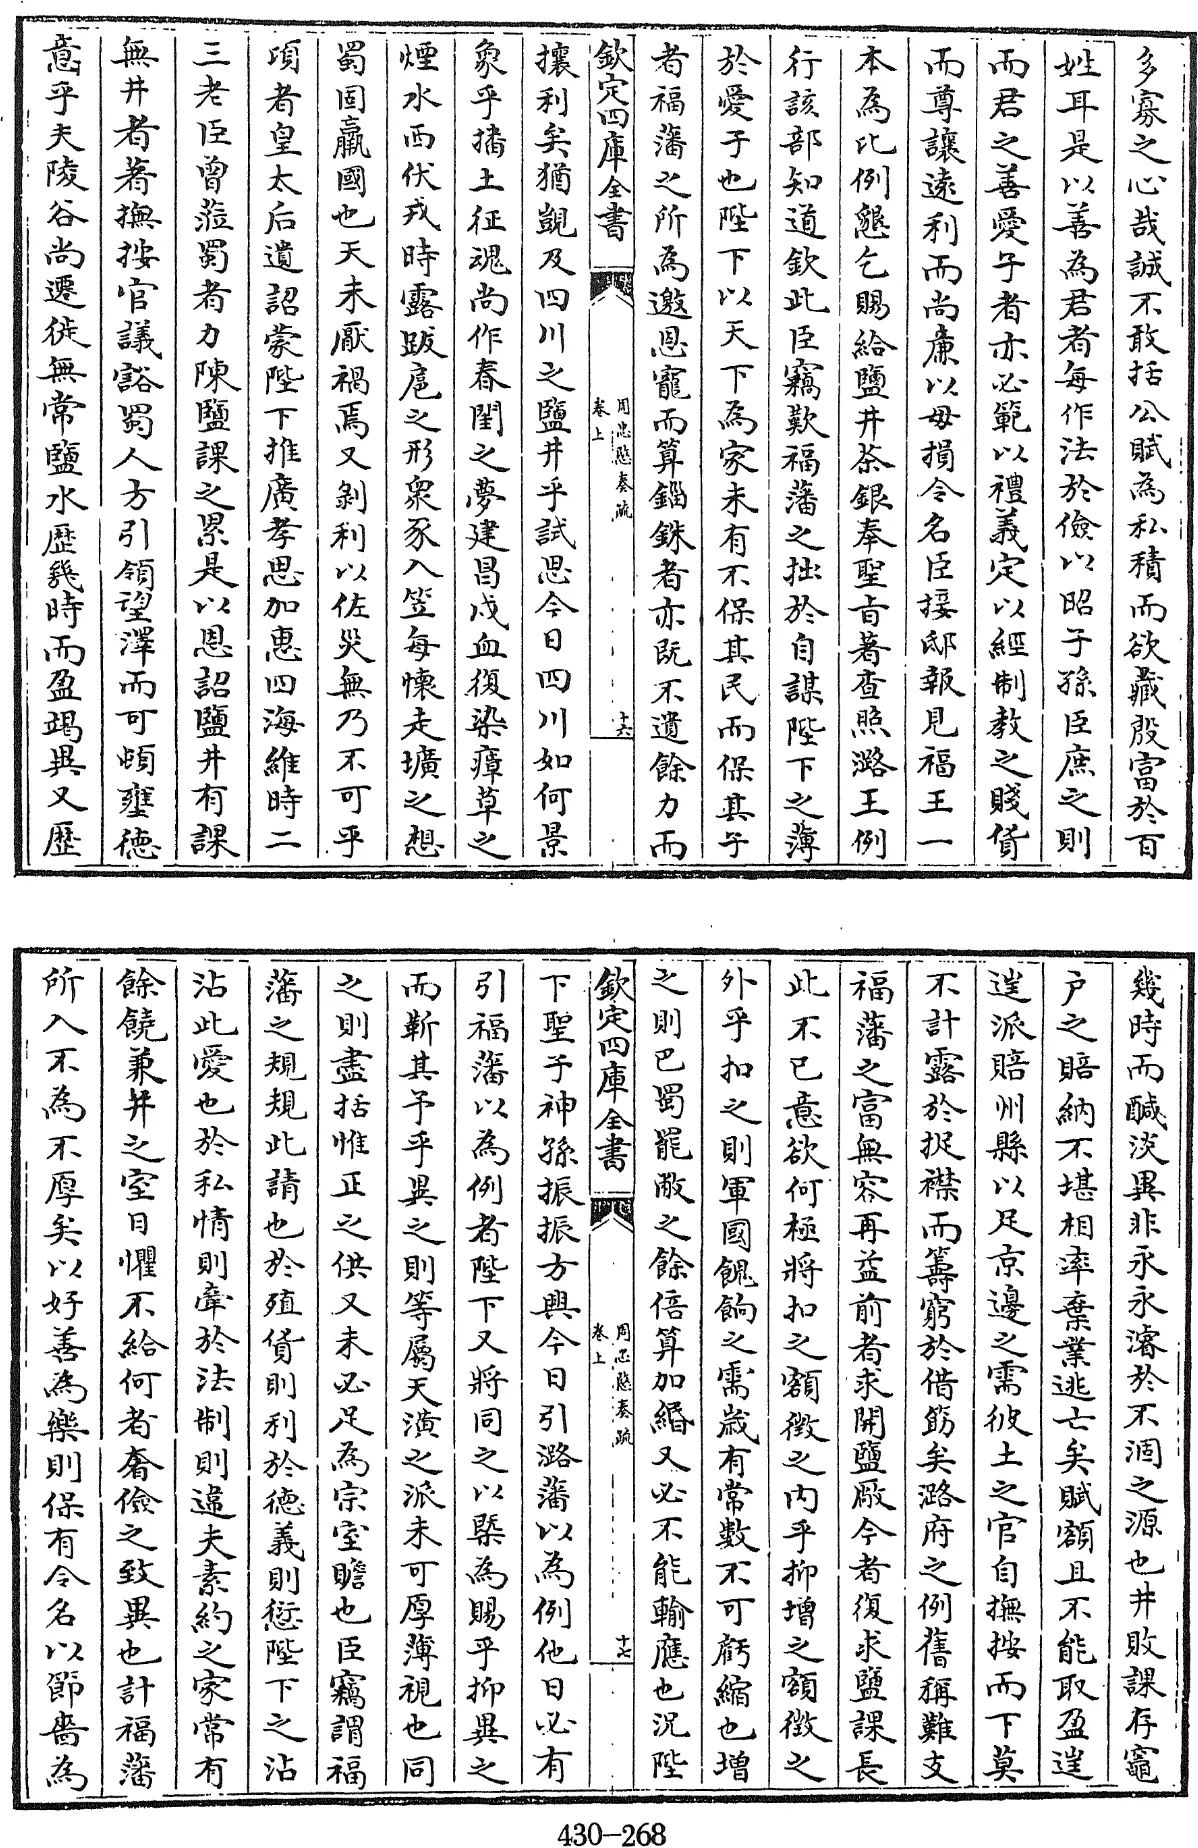 多寡之心哉誠不敢括公賦為私積而欲藏殷富於百
姓耳是以善為君者每作法於儉以昭子孫臣庶之則
而君之善愛子者亦必範以禮義定以經制教之賤貨
而尊讓遠利而尚亷以毋損令名臣接邸報見福王一
本為比例懇乞賜給鹽井茶銀奉聖旨著查照潞王例
行該部知道欽此臣竊歎福藩之拙於自謀陛下之薄
於愛子也陛下以天下為家未有不保其民而保其子
者福藩之所為邀恩寵而算錙銖者亦既不遺餘力而
欽定四庫全書
周忠愍奏疏
卷上
十六
攘利矣猶覬及四川之鹽井乎試思今日四川如何景
象乎播土征魂尚作春閨之夢建昌戍血復染瘴草之
煙水西伏戎時露跋扈之形衆豕入笠每懷走壙之想
蜀固羸國也天未厭禍焉又剝利以佐災無乃不可乎
項者皇太后遺詔蒙陛下推廣孝思加惠四海維時二
三老臣曾蒞蜀者力陳鹽課之累是以恩詔鹽井有課
無井者著撫按官議豁蜀人方引領望澤而可頓壅德
意乎夫陵谷尚遷徙無常鹽水歴幾時而盈竭異又歴
幾時而醎淡異非永永濬於不涸之源也井敗課存竈
戶之賠納不堪相率棄業逃亡矣賦額且不能取盈遑
遑派賠州縣以足京邊之需彼土之官自撫按而下莫
不計露於捉襟而籌窮於借筯矣潞府之例舊稱難支
福藩之富無容再益前者求開鹽厰今者復求鹽課長
此不已意欲何極將扣之額徵之内乎抑增之額徵之
外乎扣之則軍國餽餉之需歲有常數不可虧縮也增
之則巴蜀罷敝之餘倍算加緡又必不能輸應也況陛
欽定四庫全書
周忠愍奏疏
卷上
十七
下聖子神孫振振方興今日引潞藩以為例他日必有
引福藩以為例者陛下又將同之以槩為賜乎抑異之
而靳其予乎異之則等屬天潢之派未可厚薄視也同
之則盡括惟正之供又未必足為宗室贍也臣竊謂福
藩之規規此請也於殖貨則利於德義則愆陛下之沾
沾此愛也於私情則牽於法制則違夫素約之家常有
餘饒兼并之室日懼不給何者奢儉之致異也計福藩
所入不為不厚矣以好善為樂則保有令名以節嗇為
430-268